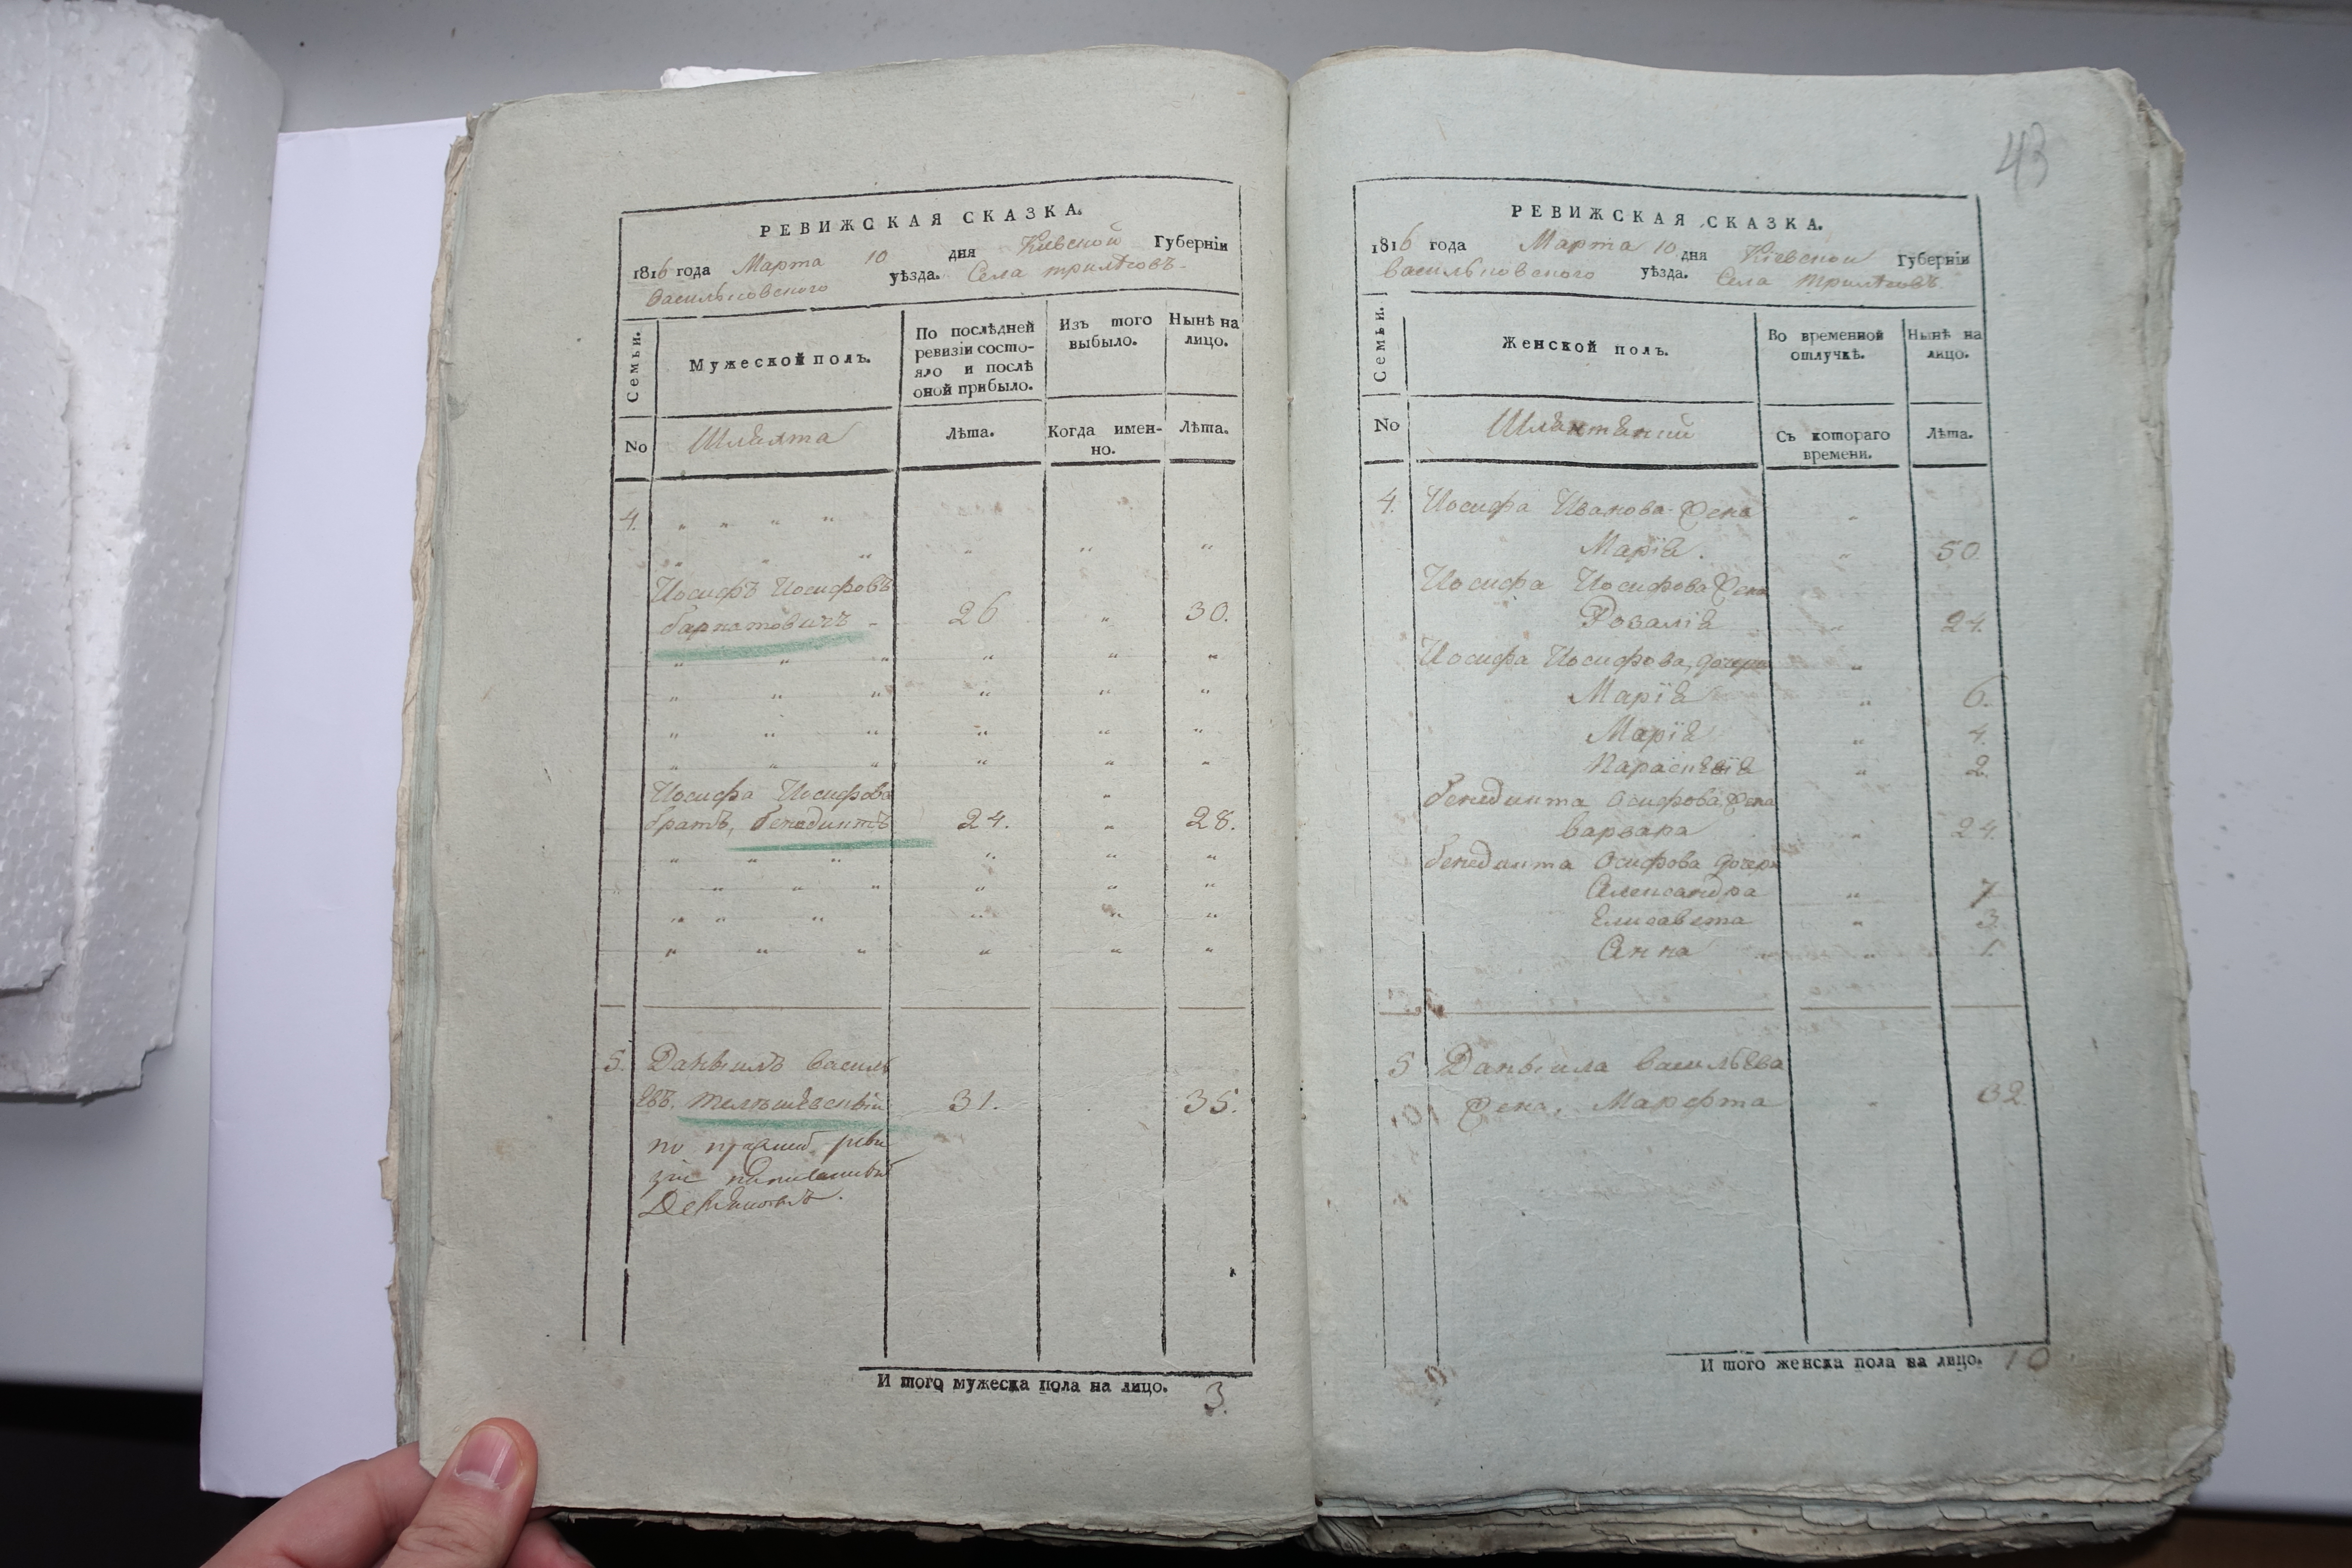 РЕВИЖСКАЯ СКАЗКА.
1816 года Марта 10 дня Кіевской Губерніи
Васильковского уѣзда. Села Трилѣсовъ
Семьи.
Мужеской полъ.
По послѣдней ревизіи состояло и послѣ оной прибыло.
Изъ того выбыло.
Нынѣ на лицо.
No
Шляхта
Лѣта.
Когда именно.
Лѣта.
4.
Иосифъ Иосифовъ
26 30.
Иосифа Иосифова
братъ, бенедиктъ 24. 28.
5. Даныилъ василь
евъ. 31. 35.
по прежней реви
зіе
И того мужеска пола на лицо. 3.
43
РЕВИЖСКАЯ СКАЗКА.
1816 года Марта 10 дня Кіевской Губерніи
Васильковского уѣзда. Села Трилѣсовъ
Семьи.
Женской полъ.
Во временной отлучкѣ.
Нынѣ на лицо.
No
Съ котораго времени.
Лѣта.
4. Иосифа Иванова Жена
Марія. 50
Иосифа Иосифова Жена
Розалія 24.
Иосифа Иосифова, дочери
Марія 6.
Марія 4.
Параскевія 2.
бенедикта Осифова, Жена
варвара 24
бенедикта Осифова дочери
Александра 7
Елисавета 3
Анна 1.
5 Даныила васильева
Жена, Марфта 32
И того женска пола на лицо. 10